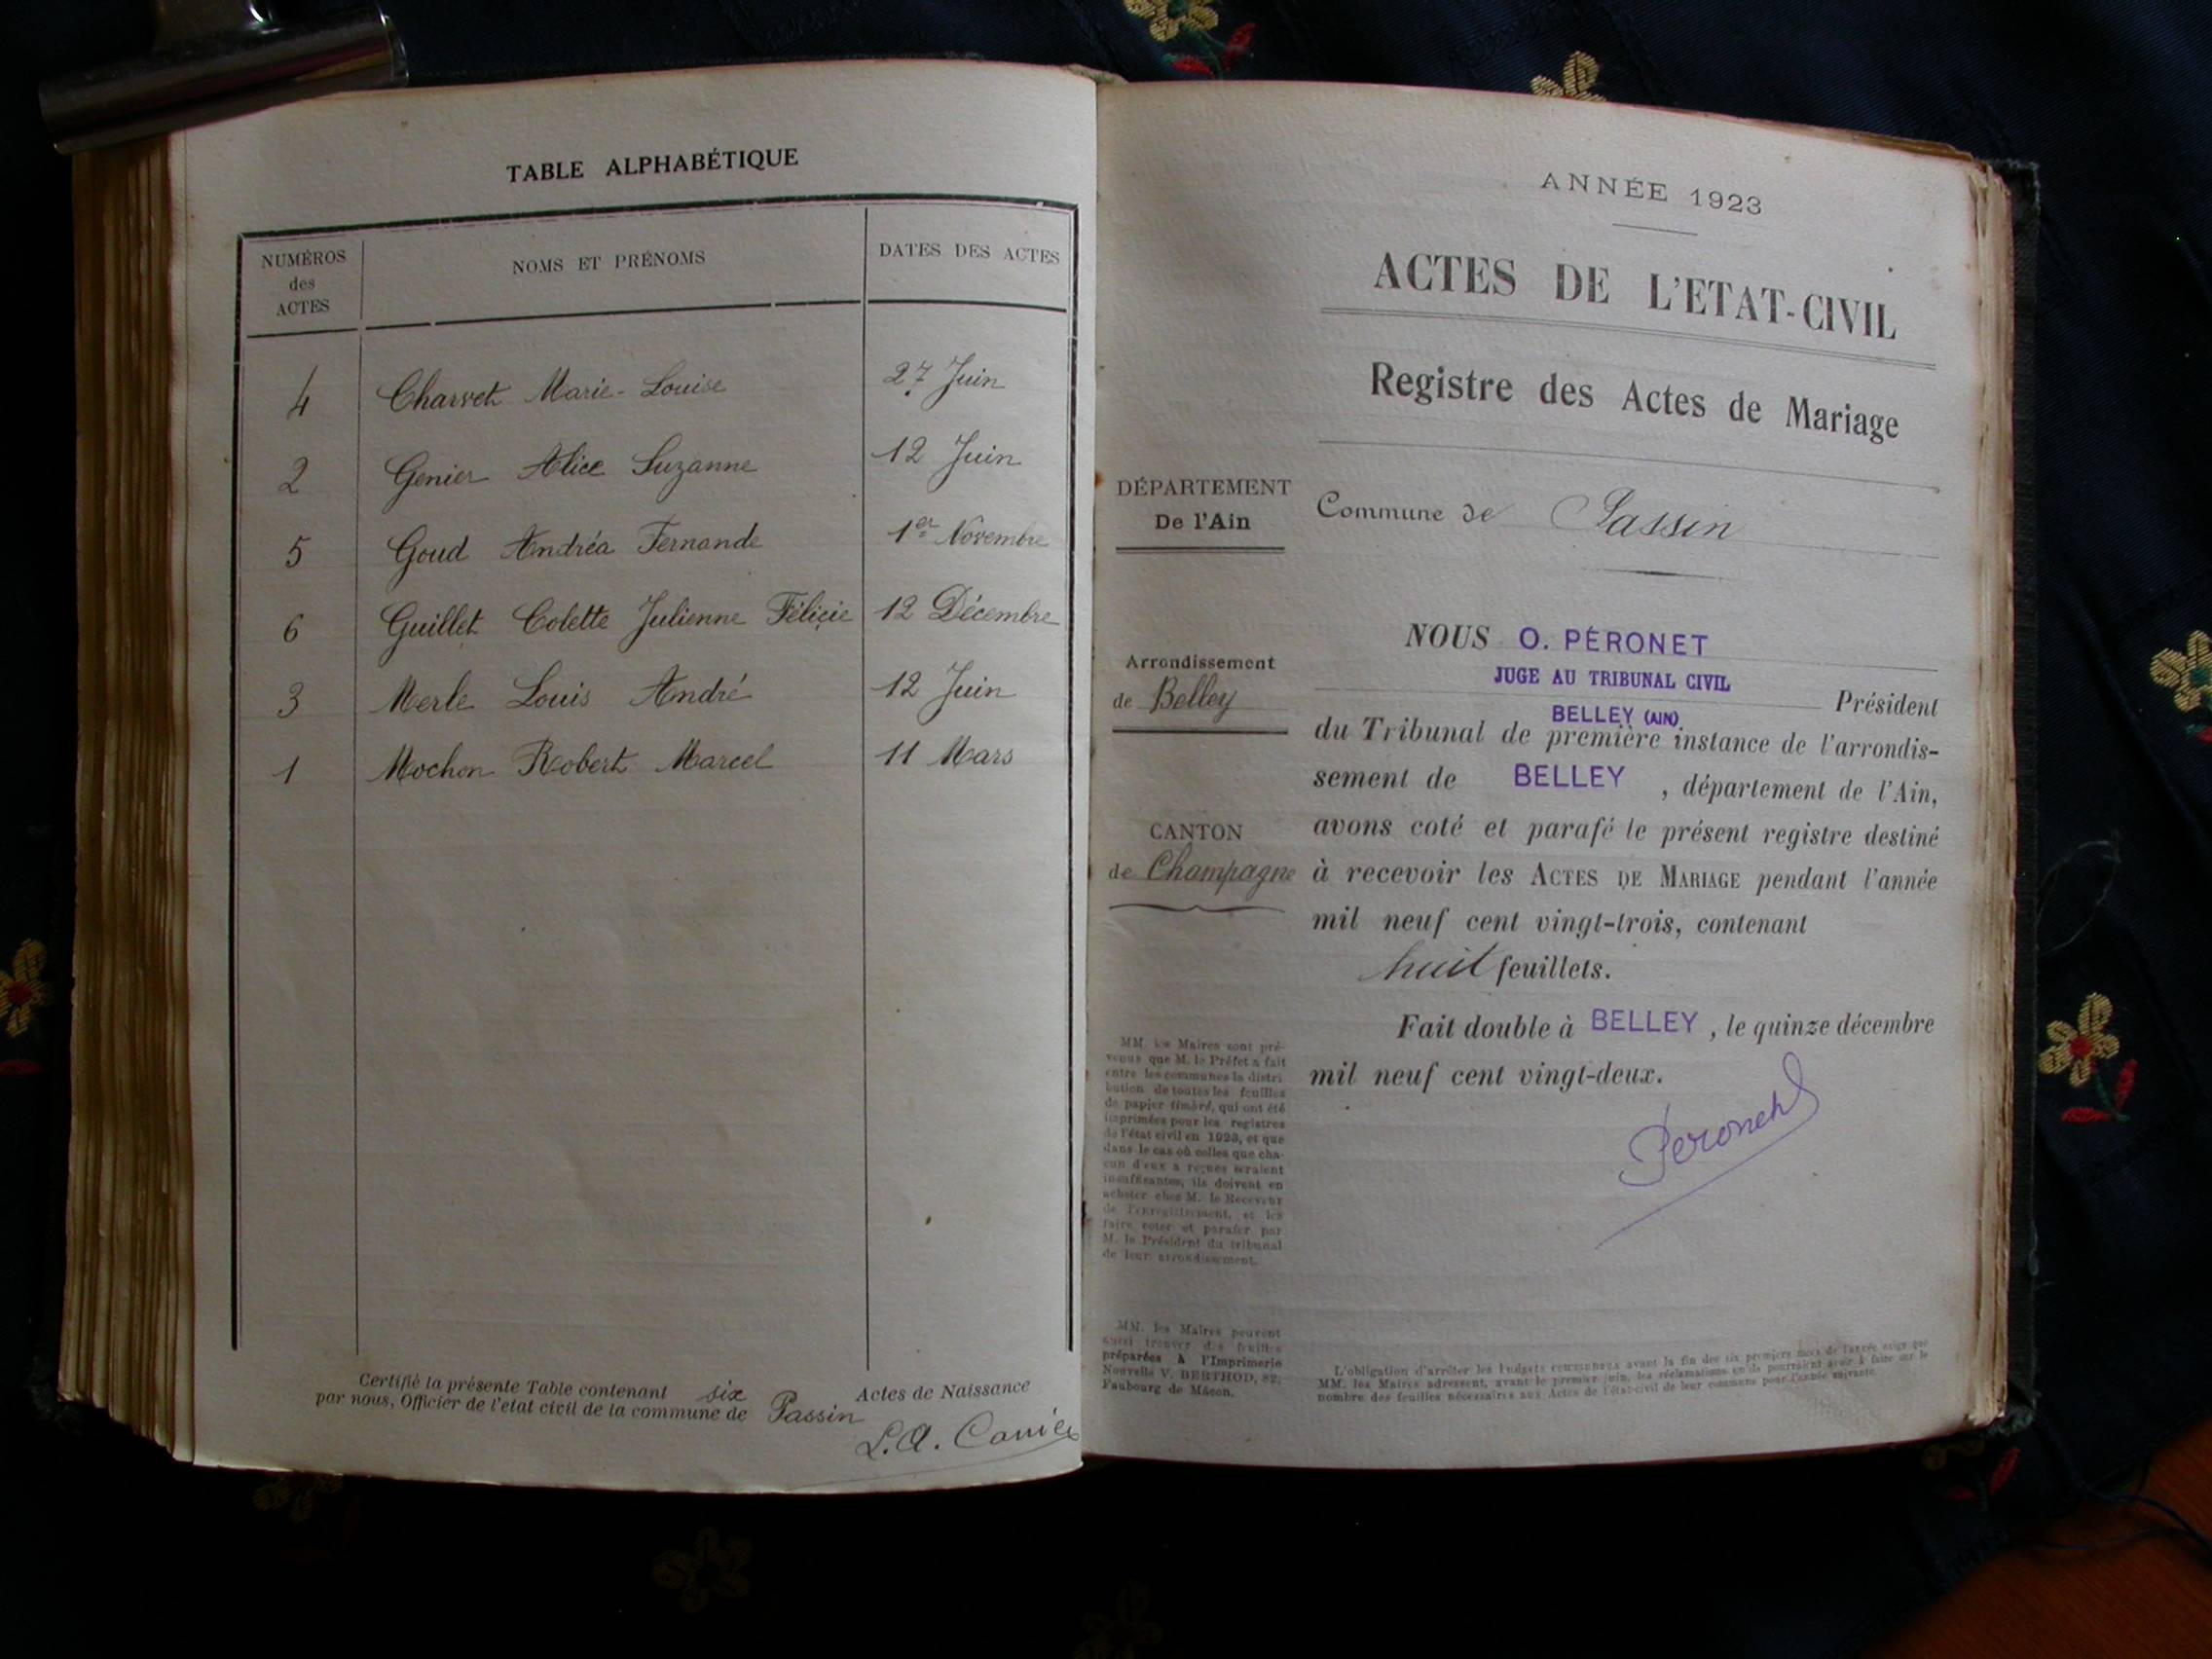 TABLE ALPHABÉTIQUE
NUMÉROS
des
ACTES
NOMS ET PRÉNOMS
DATES DES ACTES
4 Charvet Marie-Louise 27 Juin
2 Genier Alice Suzanne 12 Juin
5 Goud Andréa Fernande 1er Novembre
6 Guillet Colette Julienne Félicie 12 Décembre
3 Merle Louis André 12 Juin
1 Mochon Robert Marcel 11 Mars
Certifié la présente Table contenant six Actes de Naissance
par nous, Officier de l'etat civil de la commune de Passin
L. A.
ANNÉE 1923
ACTES DE L'ETAT-CIVIL
Registre des Actes de Mariage
DÉPARTEMENT
De l'Ain
Commune de Passin
Arrondissement
de Belley
CANTON
de Champagne
NOUS O. PÉRONET
JUGE AU TRIBUNAL CIVIL
Président
BELLEY (AIN)
du Tribunal de première instance de l'arrondis-
sement de BELLEY , département de l'Ain,
avons coté et parafé le présent registre destiné
à recevoir les ACTES DE MARIAGE pendant l'année
mil neuf cent vingt-trois, contenant
huit feuillets.
Fait double à BELLEY , le quinze décembre
mil neuf cent vingt-deux.
Péronet
MM. les Maires sont pré-
venus que M. le Préfet a fait
entre les communes la distri
bution de toutes les feuilles
de papier timbré, qui ont été
imprimées pour les registres
de l'état civil en 1923, et que
dans le cas où celles que cha-
cun d'eux a reçues seraient
insuffisantes, ils doivent en
acheter chez M. le Receveur
de l'enregistrement, et les
faire coter et parafer par
M. le Président du tribunal
de leur arrondissement.
MM. les Maires peuvent
aussi trouver des feuilles
préparées à l'Imprimerie
Nouvelle V. BERTHOD, 82,
Faubourg de Mâcon.
L'obligation d'arrêter les budgets communaux avant la fin des six premiers mois de l'année exige que
MM. les Maires adressent, avant le premier juin, les réclamations qu'ils pourraient avoir à faire sur le
nombre des feuilles nécessaires aux Actes de l'état-civil de leur commune pour l'année suivante.